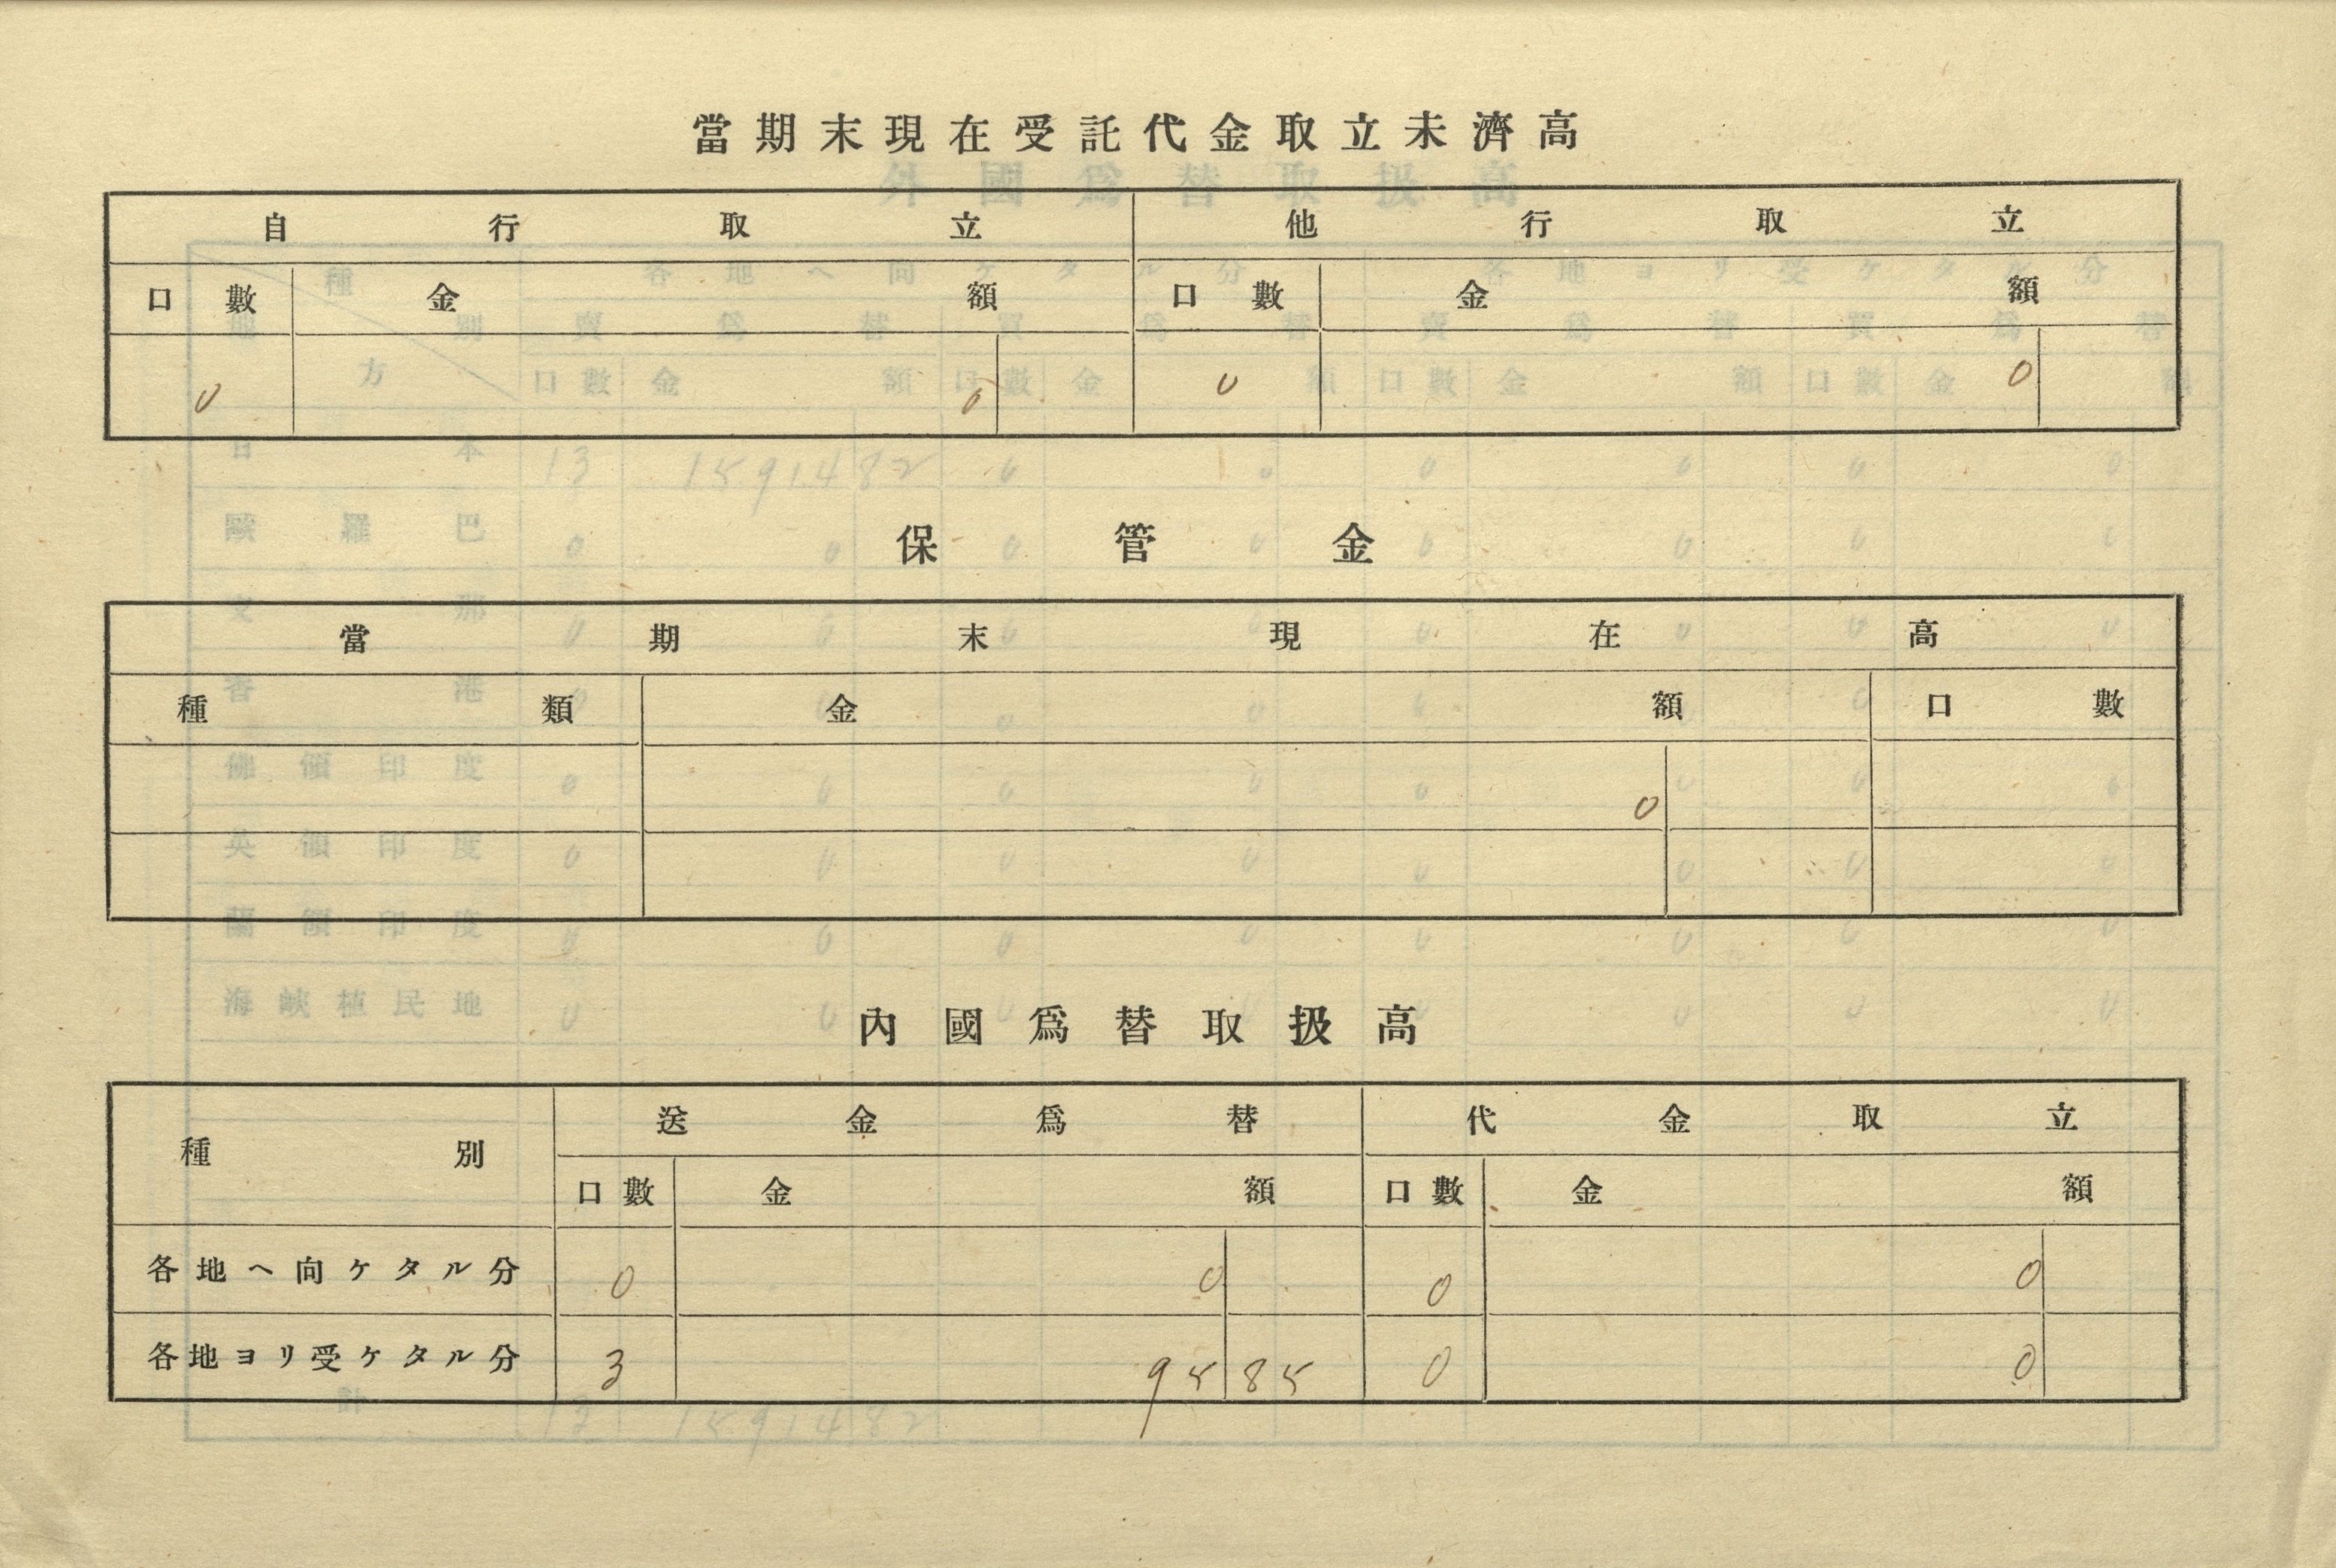 當期末現在受託代金取立未濟高
自行取立 他行取立
口數 金額 口數 金額
0 0 0 0
保管金
當期末現在高
種類 金額 口數
0
內國爲替取扱高
種別 送金爲替 代金取立
口數 金額 口數 金額
各地ヘ向ケタル分 0 0 0 0
各地ヨリ受ケタル分 3 95 85 0 0